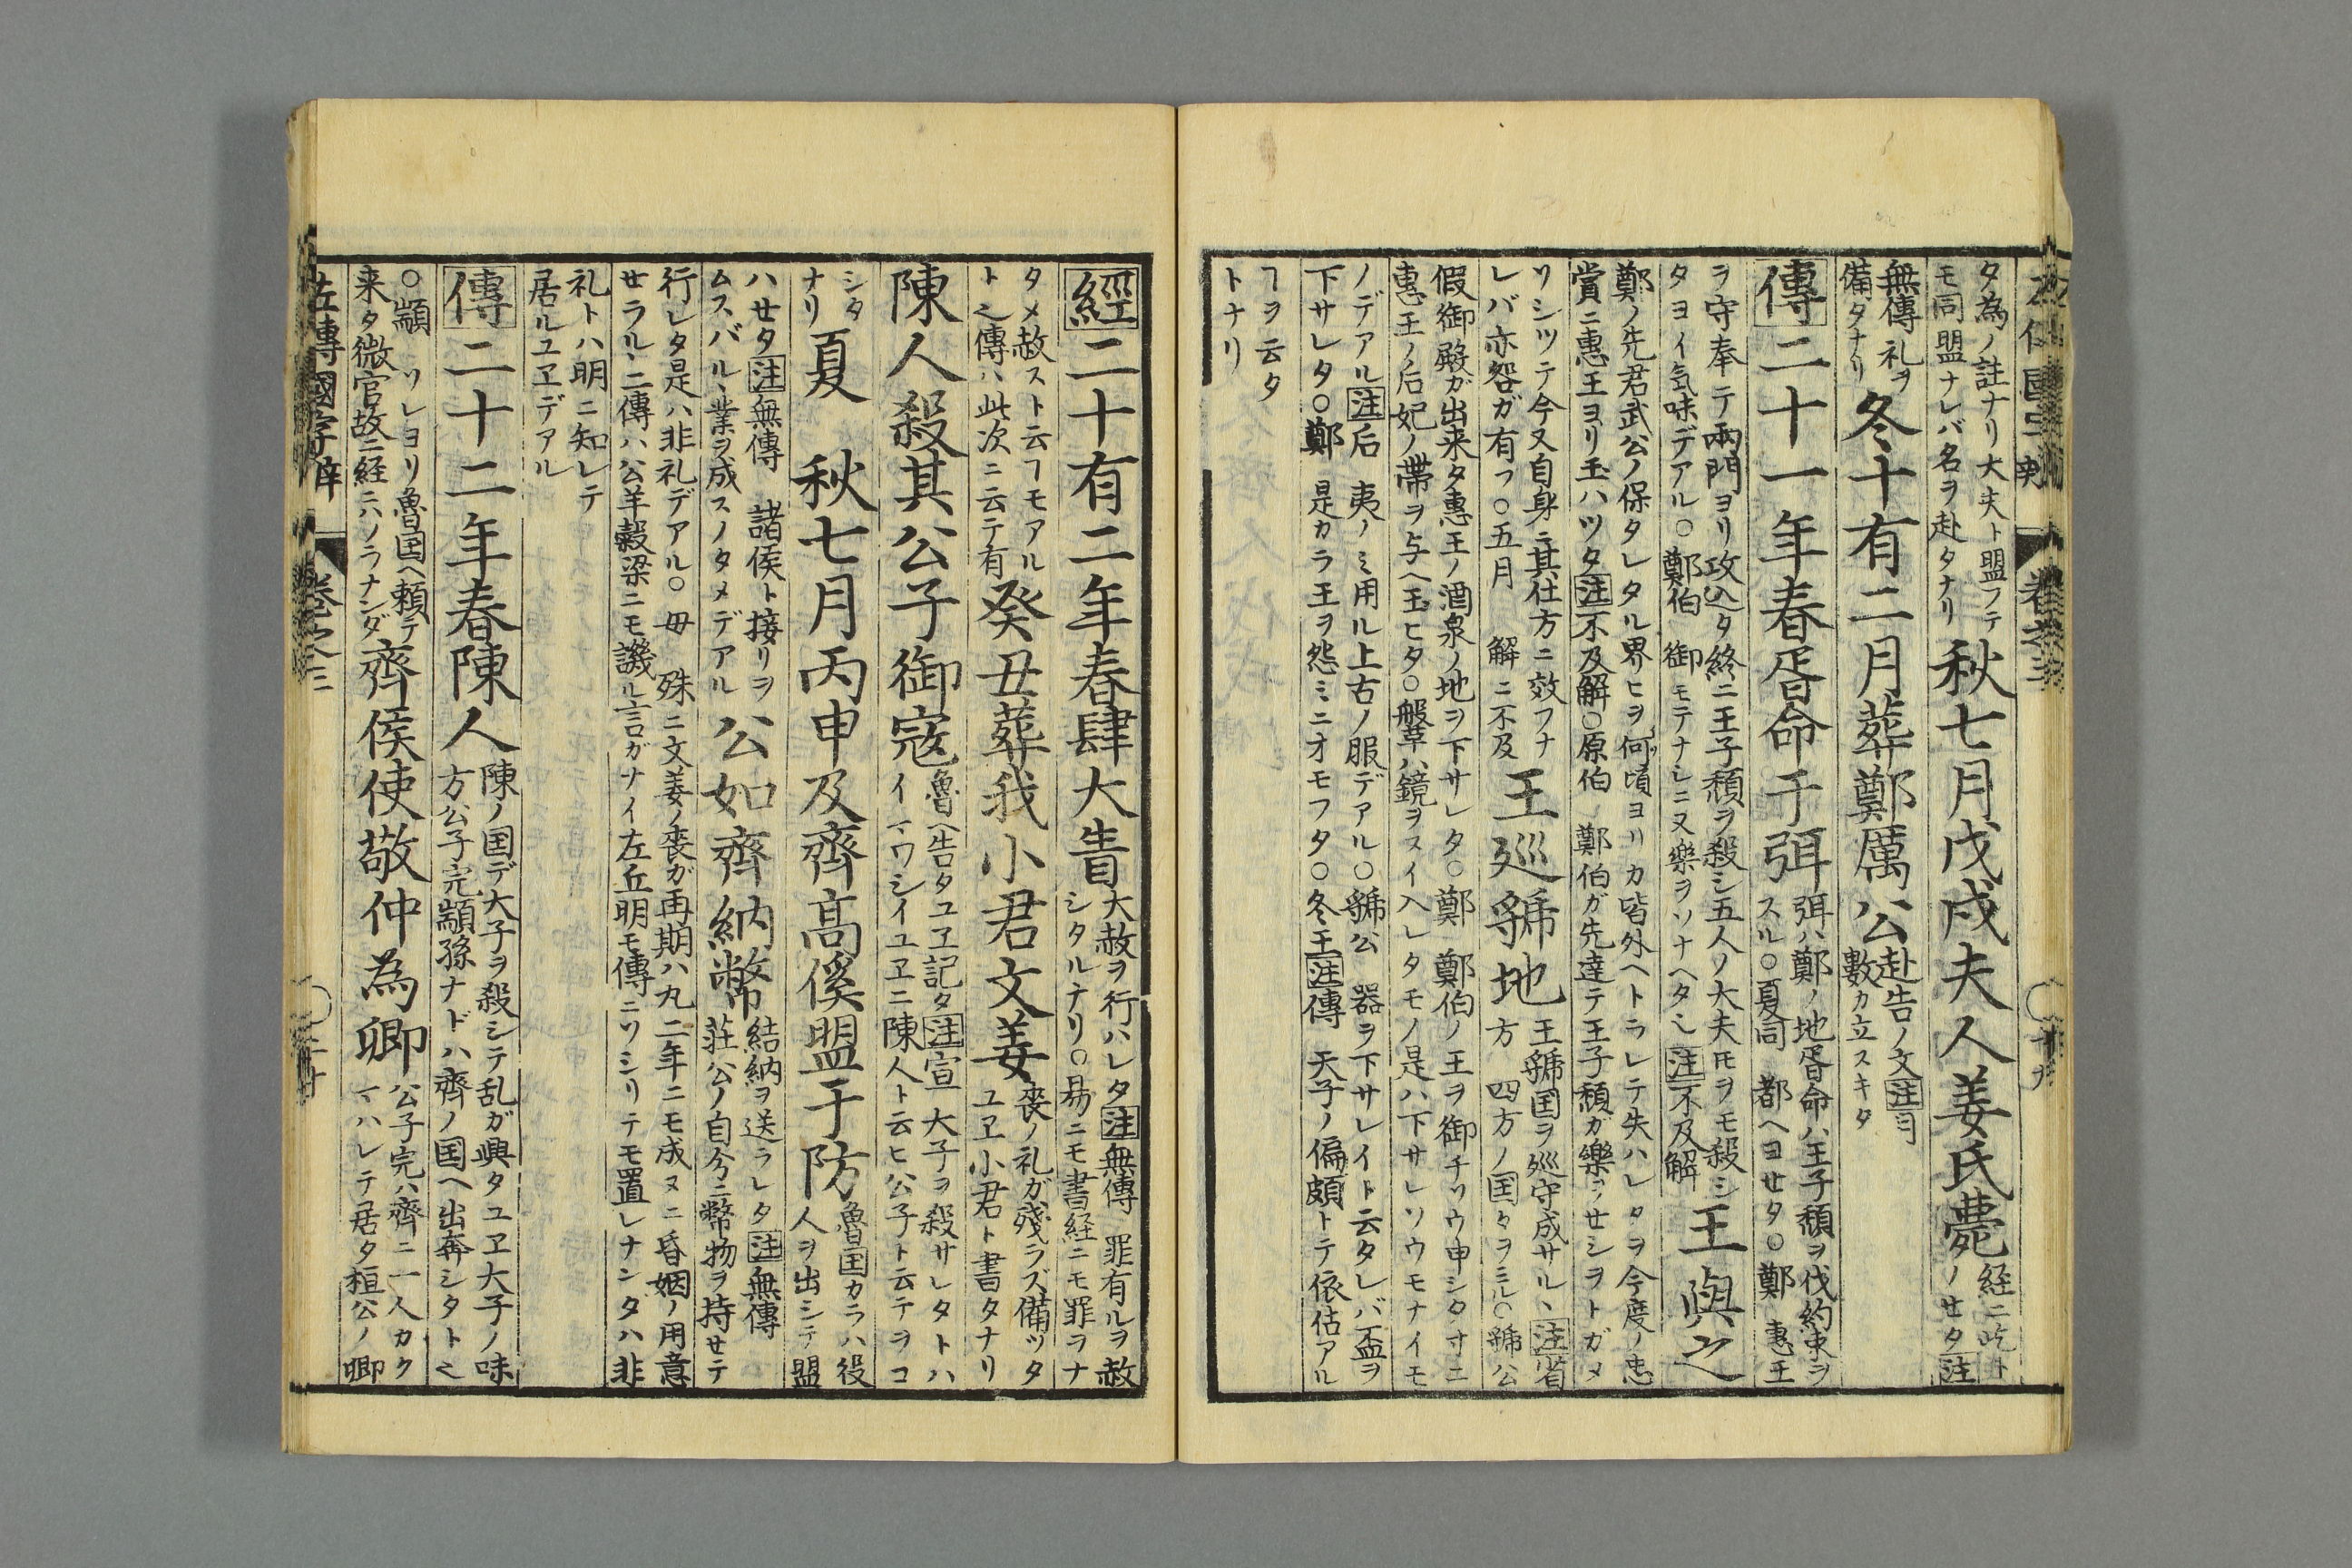 タ為ノ註ナリ大夫ト盟フテ
モ同盟ナレバ名ヲ赴タナリ
秋七月戊戌夫人姜氏薨
経ニ
ノセタ注
無傳礼ヲ
備タナリ
冬十有二月葬鄭厲公
赴告ノ文注
數カ立スキタ
傳二十一年春胥命于弭
弭ハ鄭ノ地胥命ハ王子頽ヲ伐約束ヲ
スル○夏同 都ヘヨセタ○鄭 惠王
ヲ守奉テ兩門ヨリ攻込タ終ニ王子頽ヲ殺シ五人ノ大夫モヲモ殺シ
タヨイ気味デアル○鄭伯 御モテナシニ又樂ヲソナヘタ 注不及解
王與之
鄭ノ先君武公ノ保タレタル界ヒヲ何頃ヨリカ皆外ヘトラレテ失ハレタヲ今度ノ忠
賞ニ惠王ヨリ玉ハツタ注不及解○原伯 鄭伯ガ先達テ王子頽ガ樂ヲセシヲトガメ
リシツテ今又自身ニ其仕方ニ效フナ
レバ亦咎ガ有フ○五月 解ニ不及
王巡虢地
王虢国ヲ巡守成サル、注省
方 四方ノ国々ヲミル○虢公
假御殿ガ出来タ惠王ノ酒泉ノ地ヲ下サレタ○鄭 鄭伯ノ王ヲ御チソウ申シタ寸ニ
惠王ノ后妃ノ帯ヲ与ヘ玉ヒタ○鞶革ハ鏡ヲスイ入レタモノ是ハ下サレソウモナイモ
ノデアル注后 夷ノミ用ル上古ノ服デアル○虢公 器ヲ下サレイト云タレバ盃ヲ
下サレタ○鄭 是カラ王ヲ怨ミニオモフタ○冬王注傳 天子ノ偏頗トテ依估アル
ヿヲ云タ
トナリ
經二十有二年春肆大眚
大赦ヲ行ハレタ注無傳 罪有ルヲ赦
シタルナリ○易ニモ書経ニモ罪ヲナ
タメ赦スト云ヿモアル
ト之傳ハ此次ニ云テ有
癸丑葬我小君文姜
喪ノ礼ガ殘ラズ備ツタ
ユヱ小君ト書タナリ
陳人殺其公子御寇
魯ヘ告タユヱ記タ注宣 大子ヲ殺サレタトハ
イヽワシイユヱニ陳人ト云ヒ公子ト云テヲコ
シタ
ナリ
夏 秋七月丙申及齊高傒盟于防
魯国カラハ役
人ヲ出シテ盟
ハセタ注無傳 諸侯ト接リヲ
ムスバル、業ヲ成スノタメデアル
公如齊納幣
結納ヲ送ラレタ注無傳
莊公ノ自分ニ幣物ヲ持セテ
行レタ是ハ非礼デアル○毋 殊ニ文姜ノ喪ガ再期ハ九二年ニモ成ヌニ昏姻ノ用意
セラル、二傳ハ公羊穀梁ニモ譏ル言ガナイ左丘明モ傳ニソシリテモ置レナンタハ非
礼トハ明ニ知レテ
居ルユヱデアル
傳二十二年春陳人
陳ノ国デ大子ヲ殺シテ乱ガ興タユヱ大子ノ味
方公子完顓孫ナドハ齊ノ国ヘ出奔シタト之
○顓 ソレヨリ魯国ヘ頼テ
来タ微官故ニ経ニハノラナンダ
齊侯使敬仲為卿
公子完ハ齊ニ一人カク
マハレテ居タ桓公ノ卿
左傳國字辯 卷之三